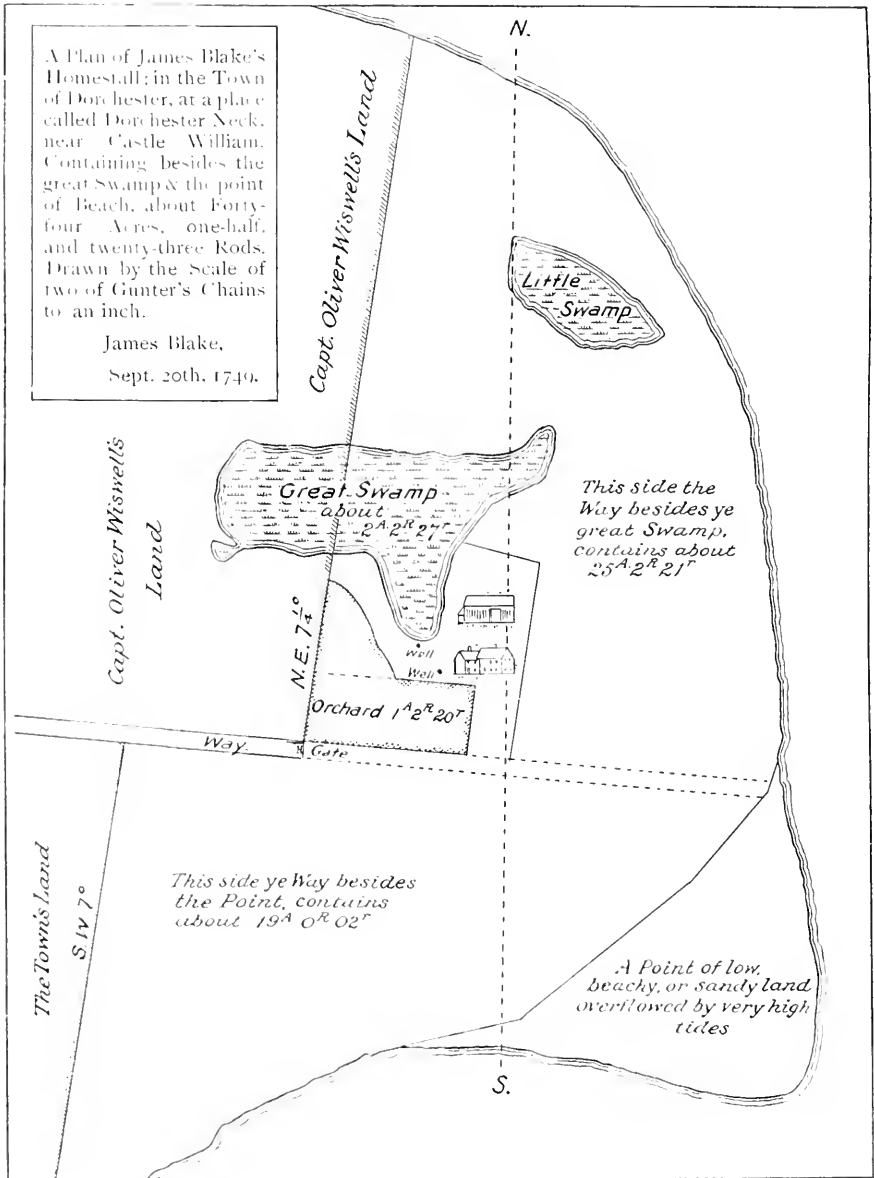 A Plan of James Blake's
Homestall; in the Town
of Dorchester, at a place
called Dorchester Neck,
near Castle William.
Containing besides the
great Swamp & the point
of Beach, about Forty-
four Acres, one-half,
and twenty-three Rods.
Drawn by the Scale of
two of Gunter's Chains
to an inch.
James Blake,
Sept. 20th, 1749.
N.
Capt. Oliver Wiswell's Land
Little
Swamp
Capt. Oliver Wiswell's
Land
Great Swamp
about
2A. 2R 27r
This side the
Way besides ye
great Swamp,
contains about
25A. 2R 21r
N.E. 7 1/4°
Well
Well
Orchard 1A 2R 20r
Way.
Gate
The Town's Land
S.W 7°
This side ye Way besides
the Point, contains
about 19A 0R 02r
A Point of low,
beachy, or sandy land
overflowed by very high
tides
S.